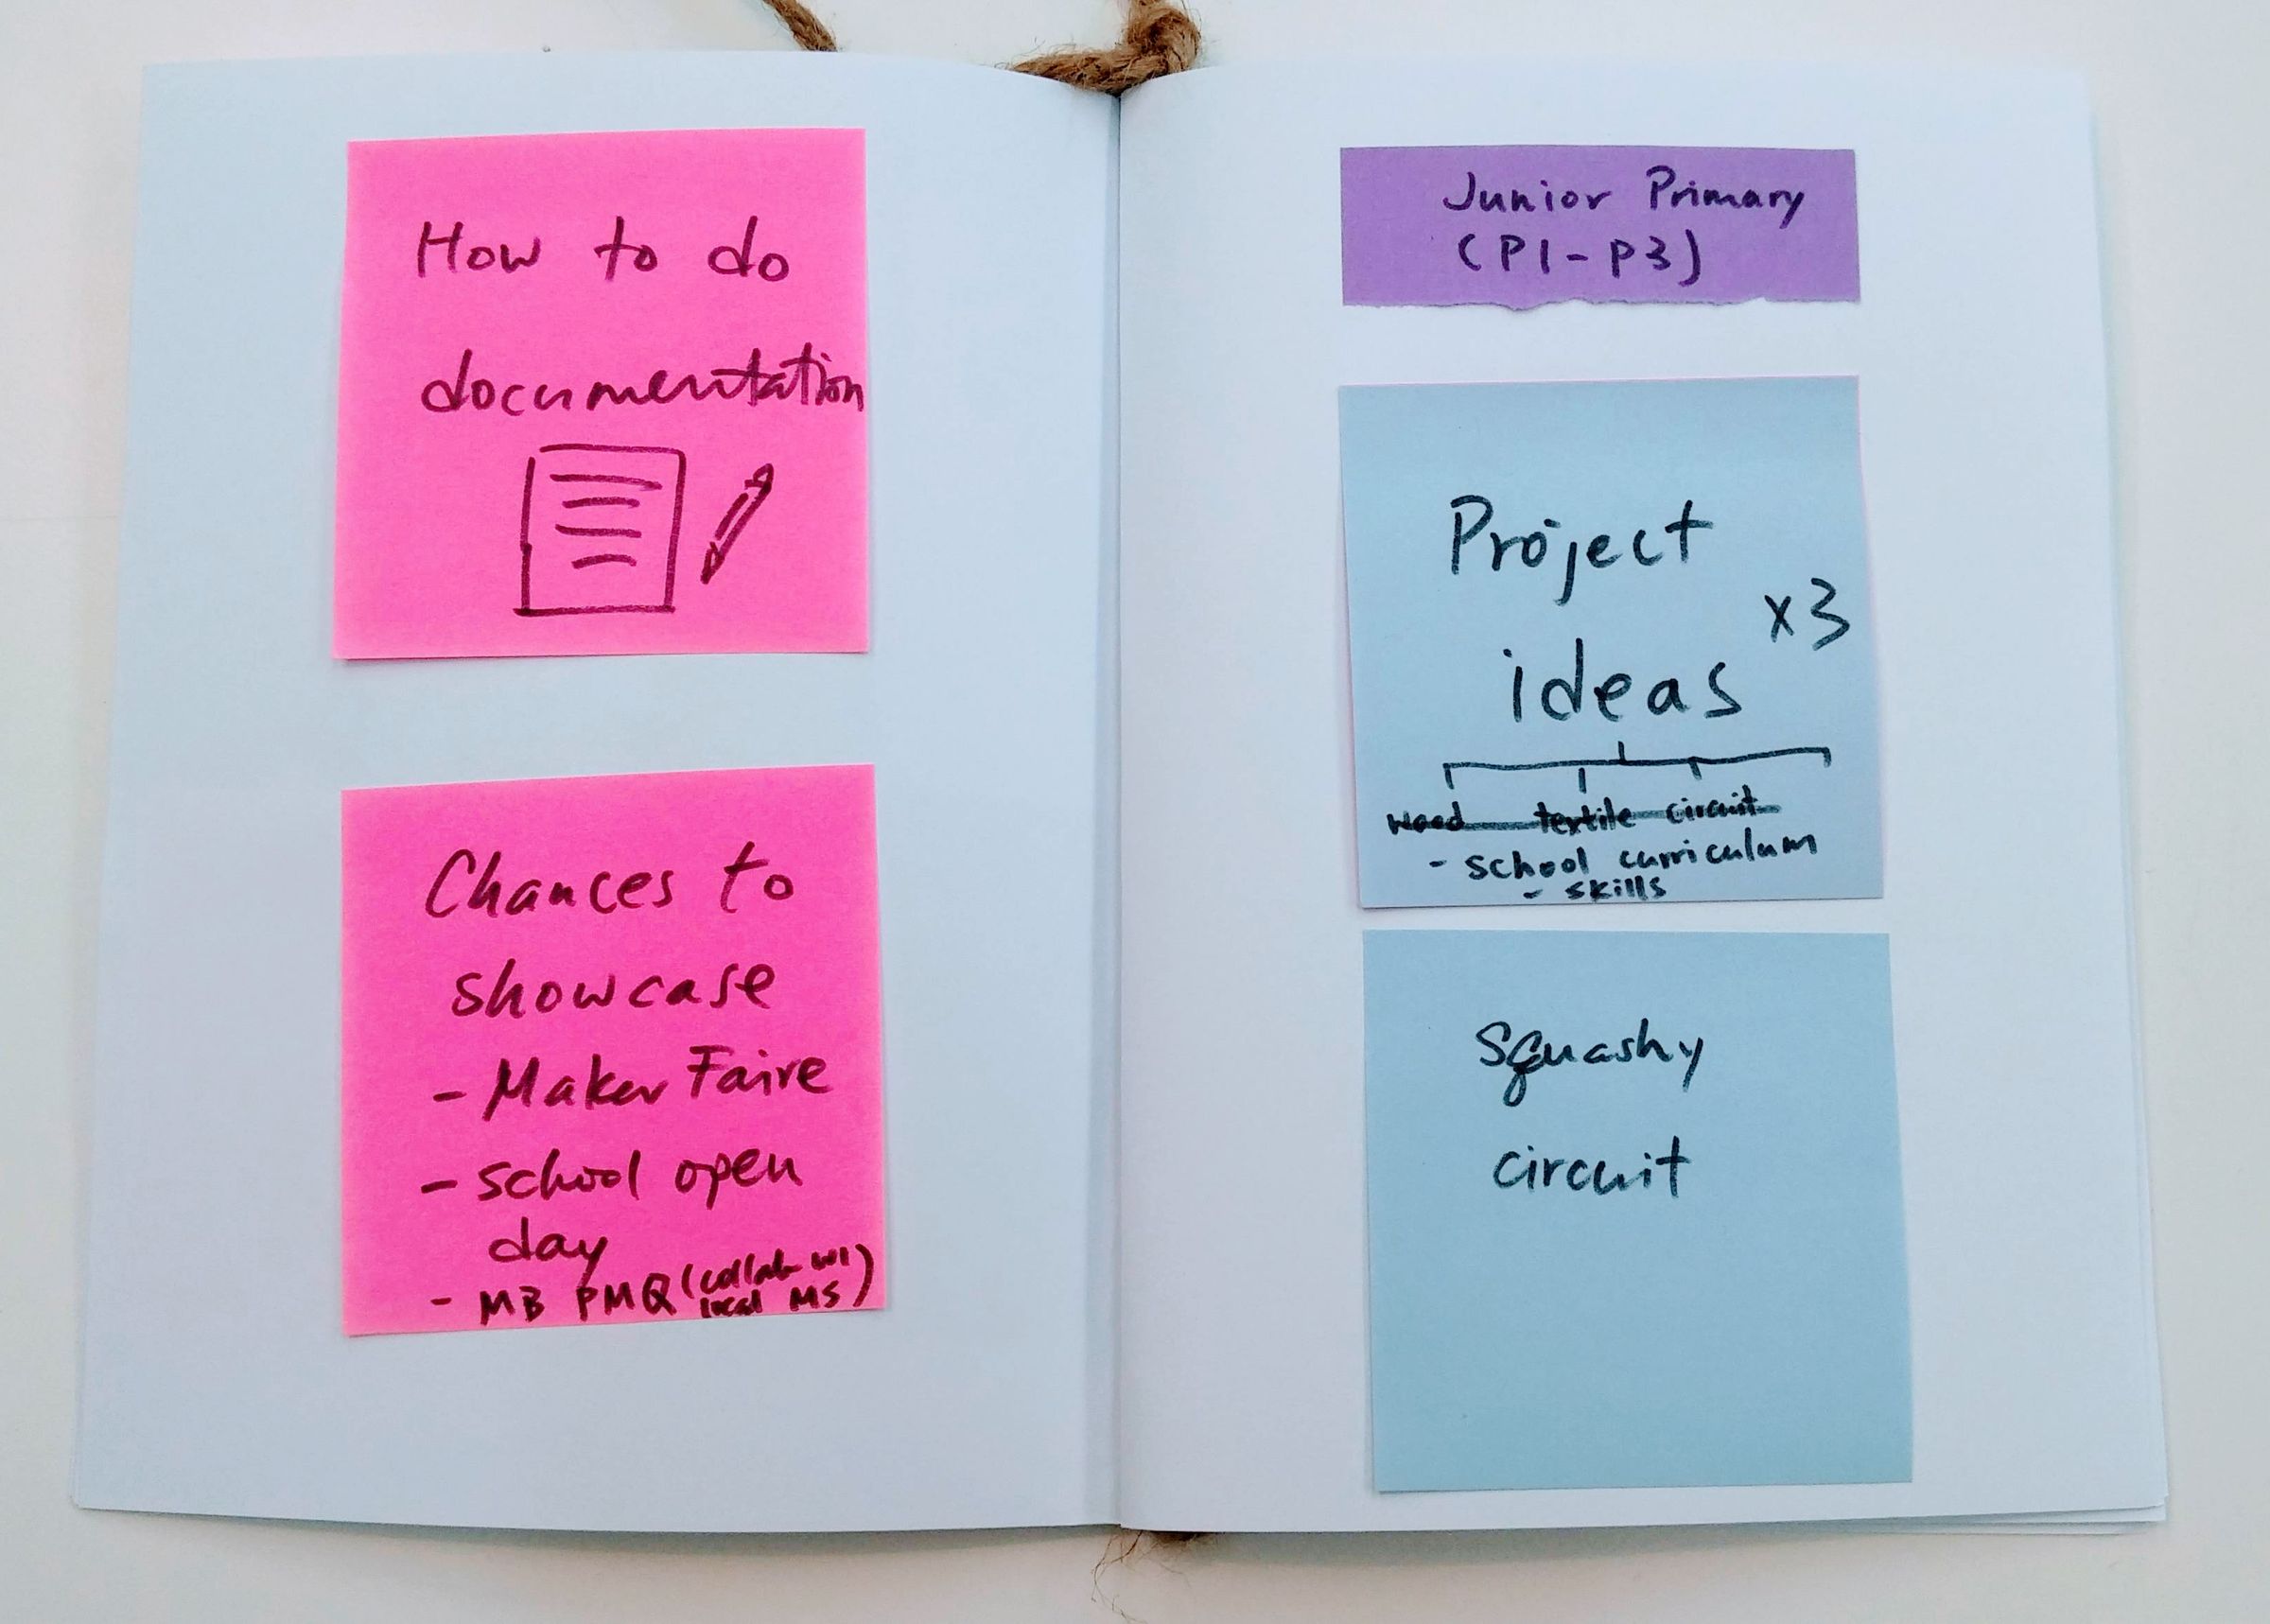 How to do
documentation
Chances to
showcase
- Maker Faire
- school open
day
- MB PMQ (collab w/
local MS)
Junior Primary
(P1-P3)
Project
ideas x3
wood textile circuit
- school curriculum
- skills
Squashy
circuit